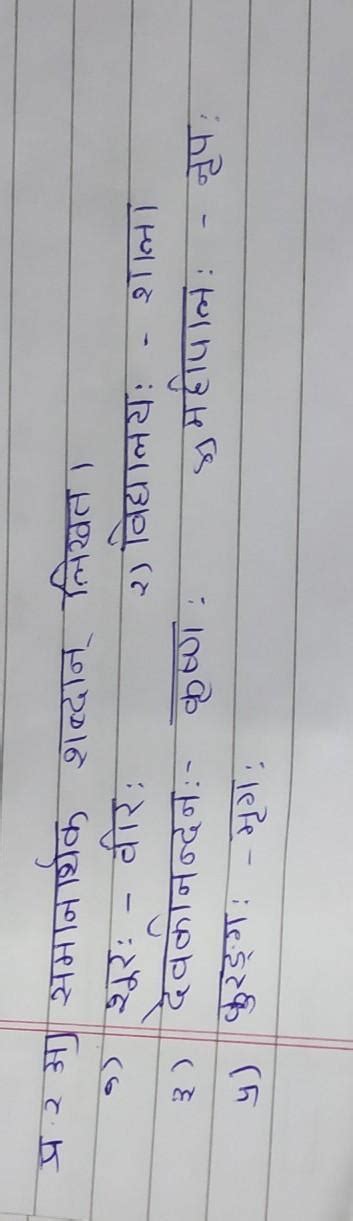 प्र. २ अ) समानार्थक शब्दान् लिखत।
१) शूरः - वीरः २) विद्यालयः - शाला
३) देवकीनन्दनः - कृष्णः ४) महीपालः - नृपः
५) कुरङ्गः - मृगः